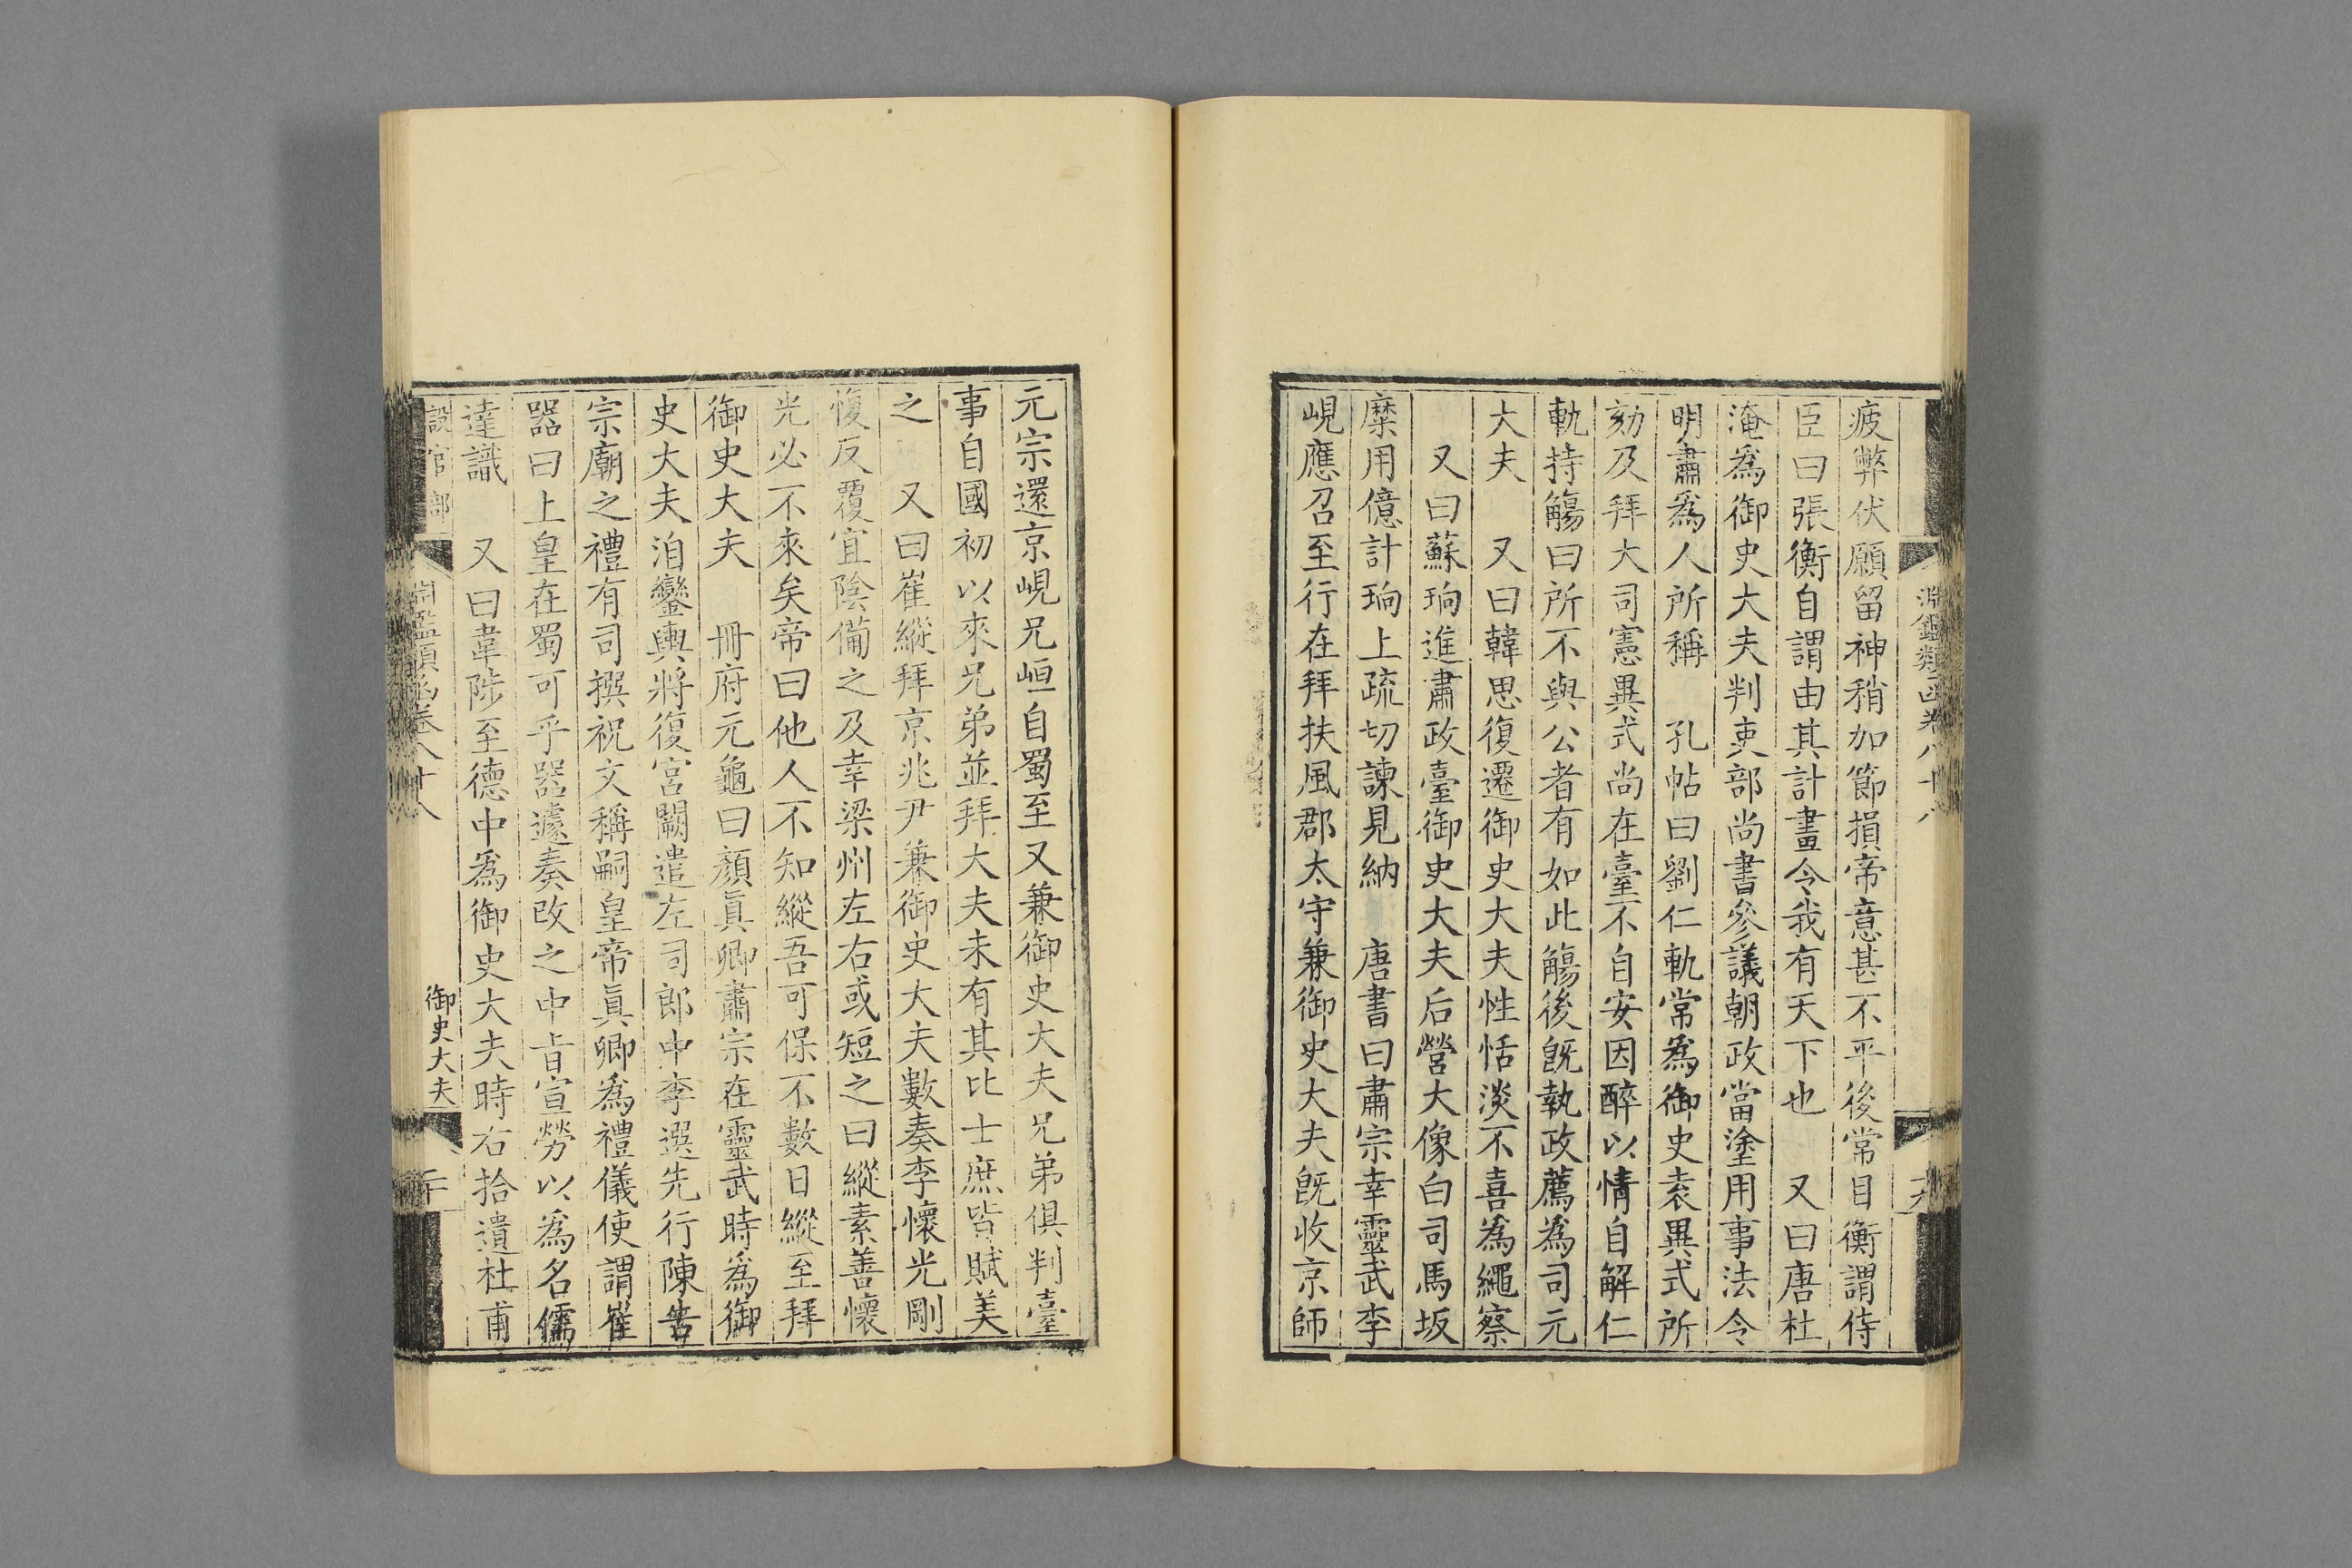 淵鑑類函卷八十八
疲弊伏願留神稍加節損帝意甚不平後常目衡謂侍
臣曰張衡自謂由其計畫令我有天下也　又曰唐杜
淹爲御史大夫判吏部尚書參議朝政當塗用事法令
明肅爲人所稱　孔帖曰劉仁軌常爲御史袁異式所
劾及拜大司憲異式尚在臺不自安因醉以情自解仁
軌持觴曰所不與公者有如此觴後既執政薦爲司元
大夫　又曰韓思復遷御史大夫性恬淡不喜爲繩察
又曰蘇珦進肅政臺御史大夫后營大像白司馬坂
糜用億計珦上疏切諫見納　唐書曰肅宗幸靈武李
峴應召至行在拜扶風郡太守兼御史大夫既收京師
元宗還京峴兄峘自蜀至又兼御史大夫兄弟俱判臺
事自國初以來兄弟並拜大夫未有其比士庶皆賦美
之　又曰崔縱拜京兆尹兼御史大夫數奏李懷光剛
愎反覆宜陰備之及幸梁州左右或短之曰縱素善懷
光必不來矣帝曰他人不知縱吾可保不數日縱至拜
御史大夫　冊府元龜曰顏真卿肅宗在靈武時爲御
史大夫洎鑾輿將復宮闕遣左司郎中李選先行陳告
宗廟之禮有司撰祝文稱嗣皇帝真卿爲禮儀使謂崔
器曰上皇在蜀可乎器遽奏改之中旨宣勞以爲名儒
達識　又曰韋陟至德中爲御史大夫時右拾遺杜甫
設官部　淵鑑類函卷八十八　御史大夫　二十